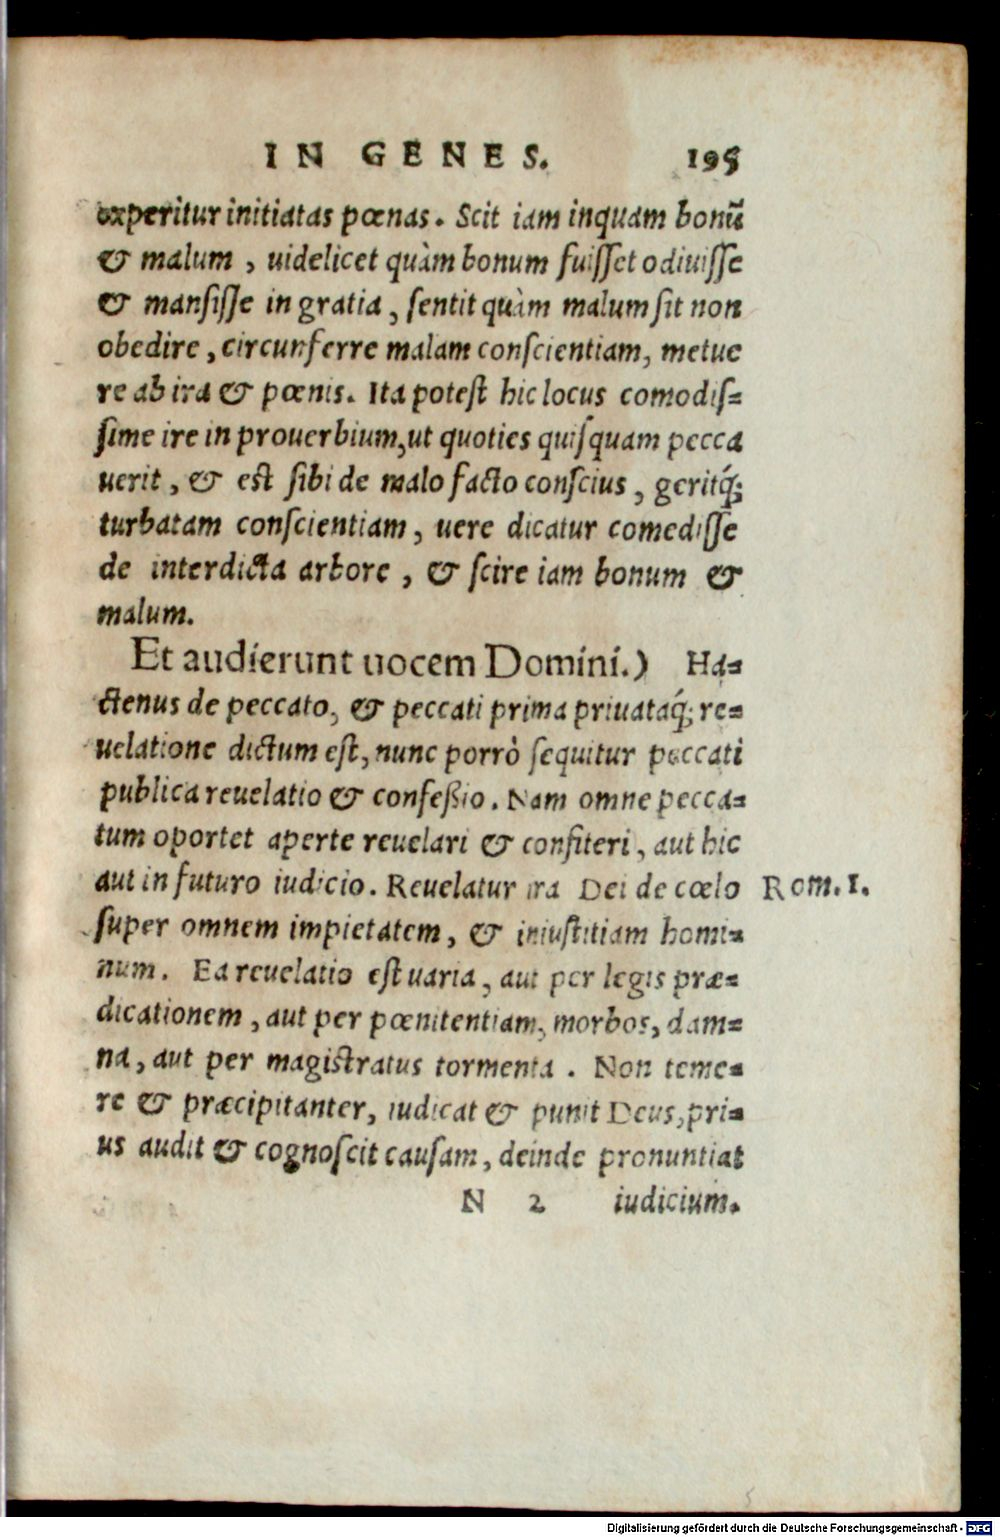 IN GENES. 195
experitur initiatas pœnas. Scit iam inquam bonū
& malum, uidelicet quàm bonum fuiſſet odiuiſſe
& manſiſſe in gratia, ſentit quàm malum ſit non
obedire, circunferre malam conſcientiam, metue
re ab ira & pœnis. Ita poteſt hic locus comodiſ-
ſime ire in prouerbium, ut quoties quiſquam pecca
uerit, & eſt ſibi de malo facto conſcius, geritq́;
turbatam conſcientiam, uere dicatur comediſſe
de interdicta arbore, & ſcire iam bonum &
malum.
Et audierunt uocem Domini.) Ha-
ctenus de peccato, & peccati prima priuataq́; re-
uelatione dictum eſt, nunc porrò ſequitur peccati
publica reuelatio & confeßio. Nam omne pecca-
tum oportet aperte reuelari & confiteri, aut hic
aut in futuro iudicio. Reuelatur ira Dei de cœlo Rom. 1.
ſuper omnem impietatem, & iniuſtitiam homi-
num. Ea reuelatio eſt uaria, aut per legis præ-
dicationem, aut per pœnitentiam, morbos, dam-
na, aut per magiſtratus tormenta. Non teme-
re & præcipitanter, iudicat & punit Deus, pri-
us audit & cognoſcit cauſam, deinde pronuntiat
N 2 iudicium.
Digitalisierung gefördert durch die Deutsche Forschungsgemeinschaft - DFG